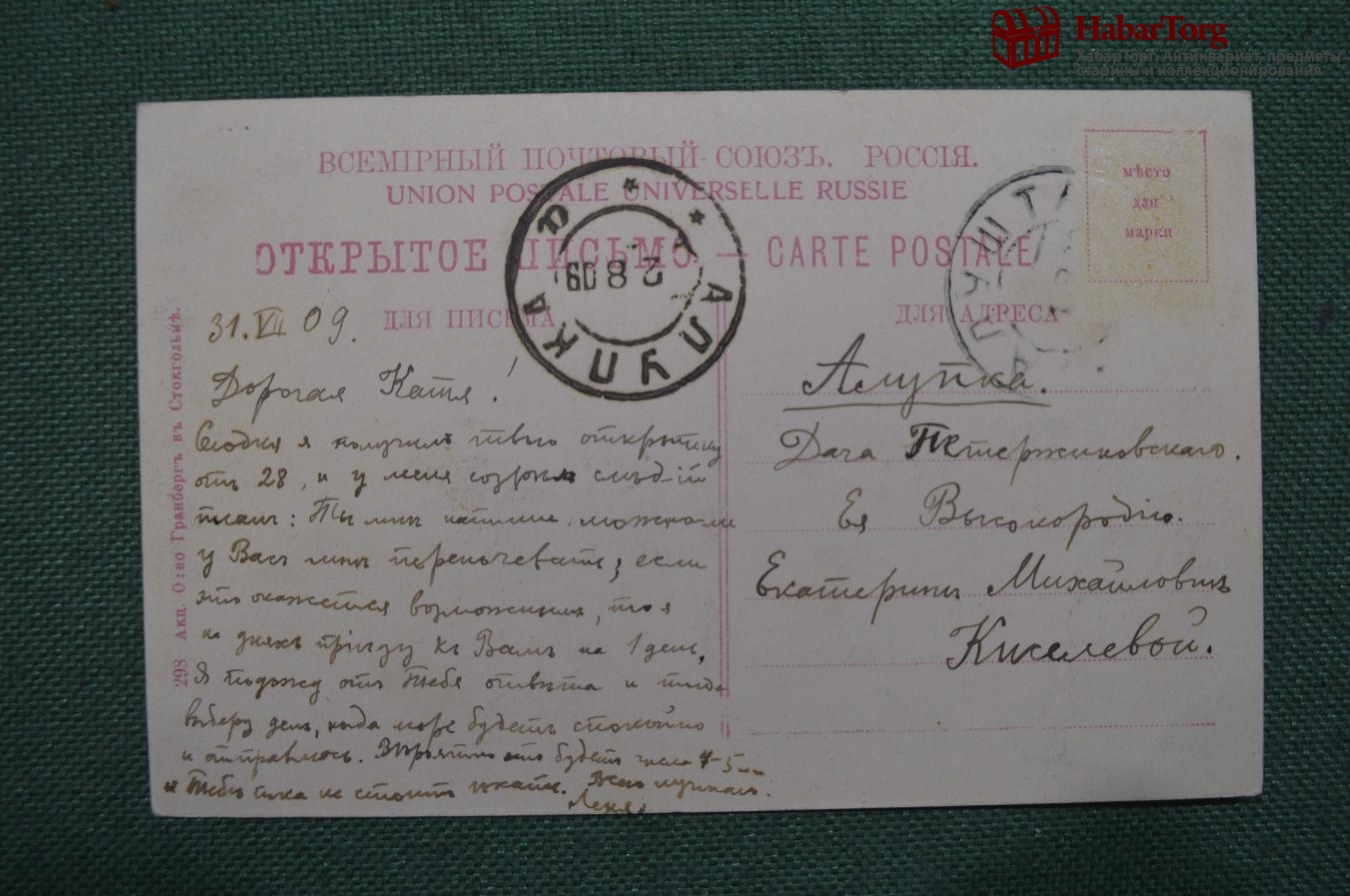 HabarTorg
ХабарТорг. Антиквариат, предметы
старины и коллекционирования
ВСЕМІРНЫЙ ПОЧТОВЫЙ СОЮЗЪ. РОССІЯ.
UNION POSTALE UNIVERSELLE RUSSIE
ОТКРЫТОЕ ПИСЬМО — CARTE POSTALE
мѣсто
для
марки
АЛУПКА
2 8 09
АЛУШТА
ДЛЯ ПИСЬМА
ДЛЯ АДРЕСА
298 Акц. О:во Гранбергъ въ Стокгольмѣ.
31.VII 09.
Дорогая Катя!
Сегодня я получилъ твою открытку
отъ 28, и у меня созрѣлъ слѣд-ій
планъ: Ты мнѣ напиши, можно ли
у Васъ мнѣ переночевать; если
это окажется возможнымъ, то я
на дняхъ пріѣду къ Вамъ на 1 день,
Я подожду отъ Тебя отвѣта и тогда
выберу день, когда море будетъ спокойно
и отправлюсь. Вѣроятно это будетъ числа 4-5
Тебѣ пока не стоитъ ѣхать. Всего лучшаго.
Леня
Алупка.
Дача
Ея Высокородію.
Екатеринѣ Михайловнѣ
Киселевой.